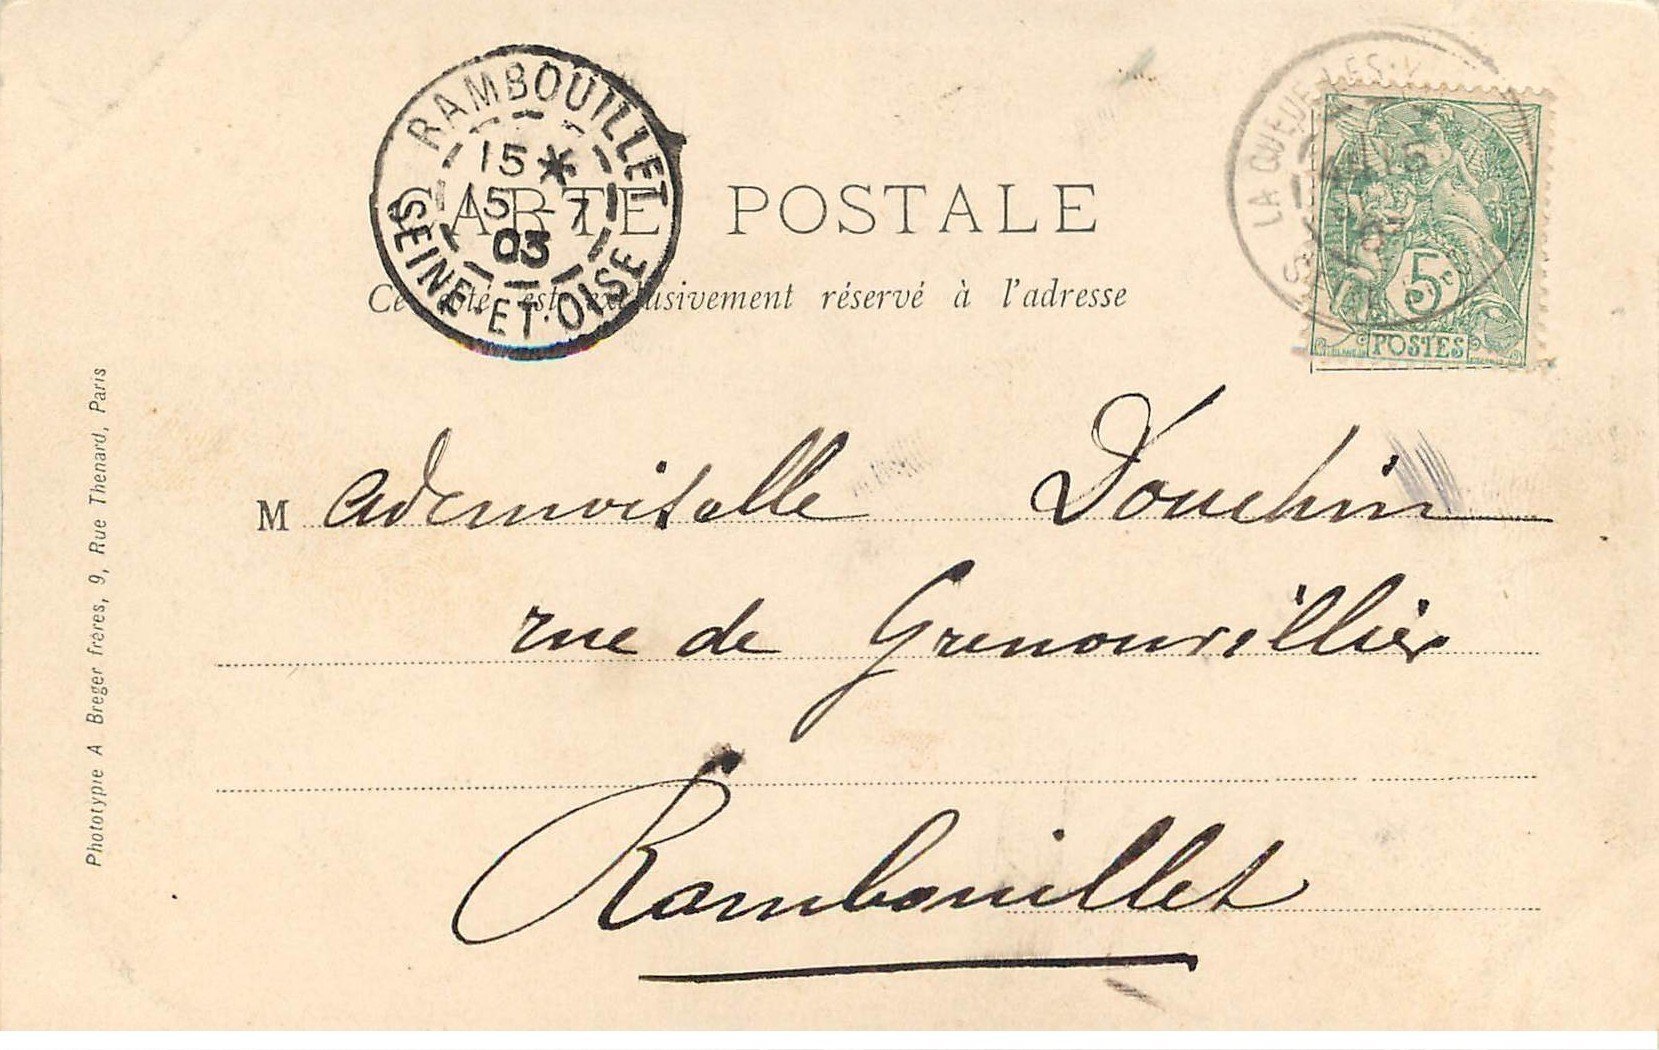 RAMBOUILLET
15 *
15 - 7
03
SEINE-ET-OISE
LA QUEUE-LES-Y
CARTE POSTALE
Ce côté est exclusivement réservé à l'adresse
5c
POSTES
Mademoiselle Douchin
rue de Grenouvillier
Rambouillet
Phototypie A Breger frères, 9, Rue Thenard, Paris